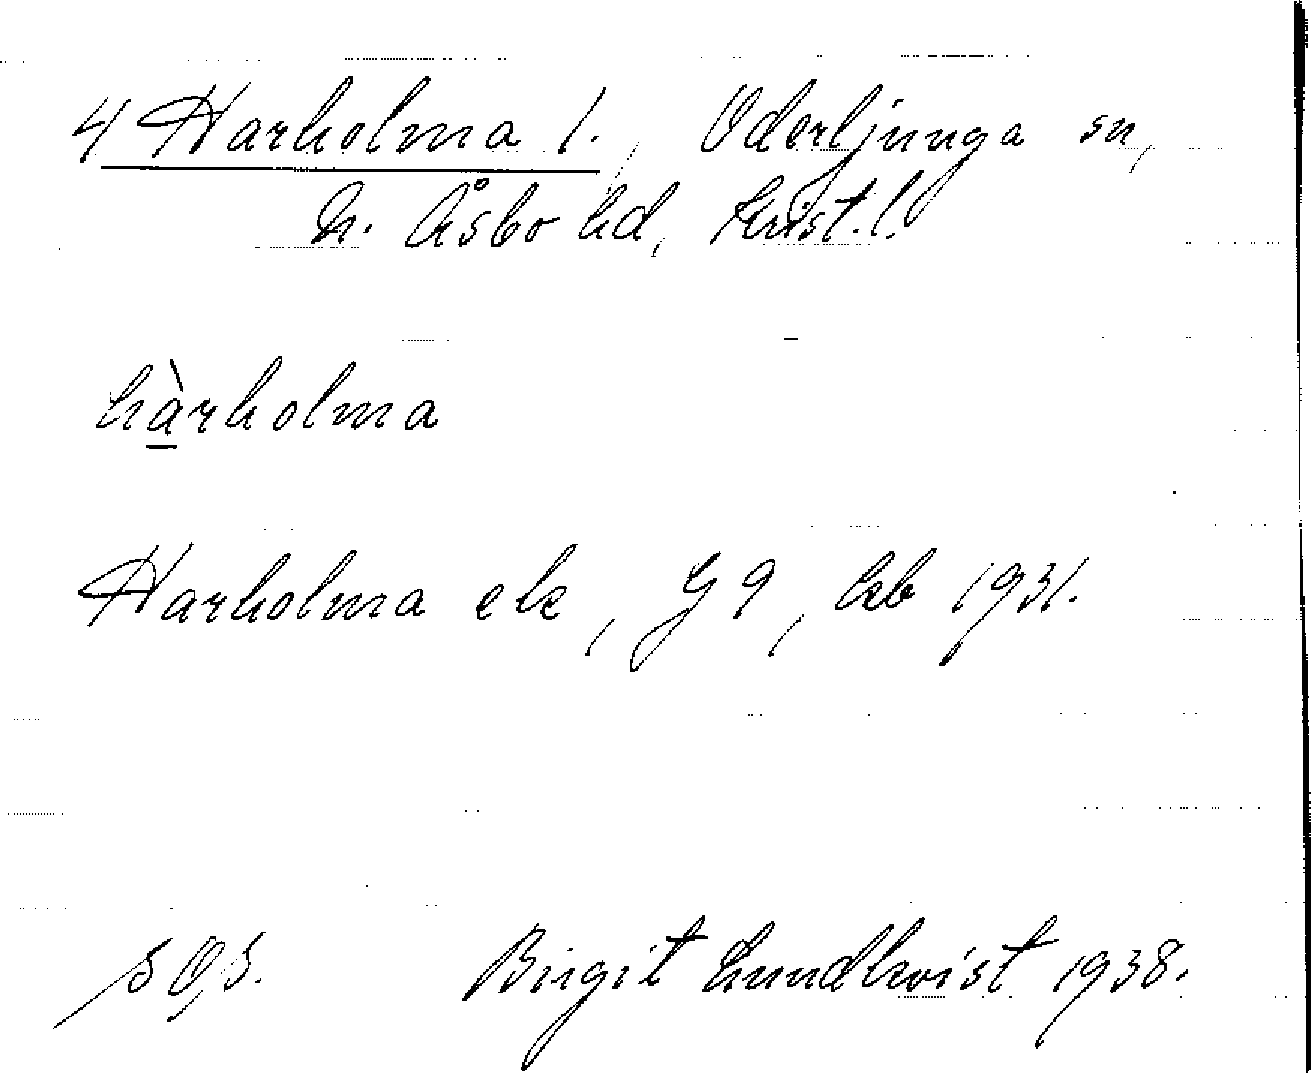 4 Harholma 1., Oderljunga sn,
N. Åsbo hd, Krist. l.
hàrholma
Harholma ek, G 9, kb 1931.
s Og s.
Birgit Lundkvist 1938.